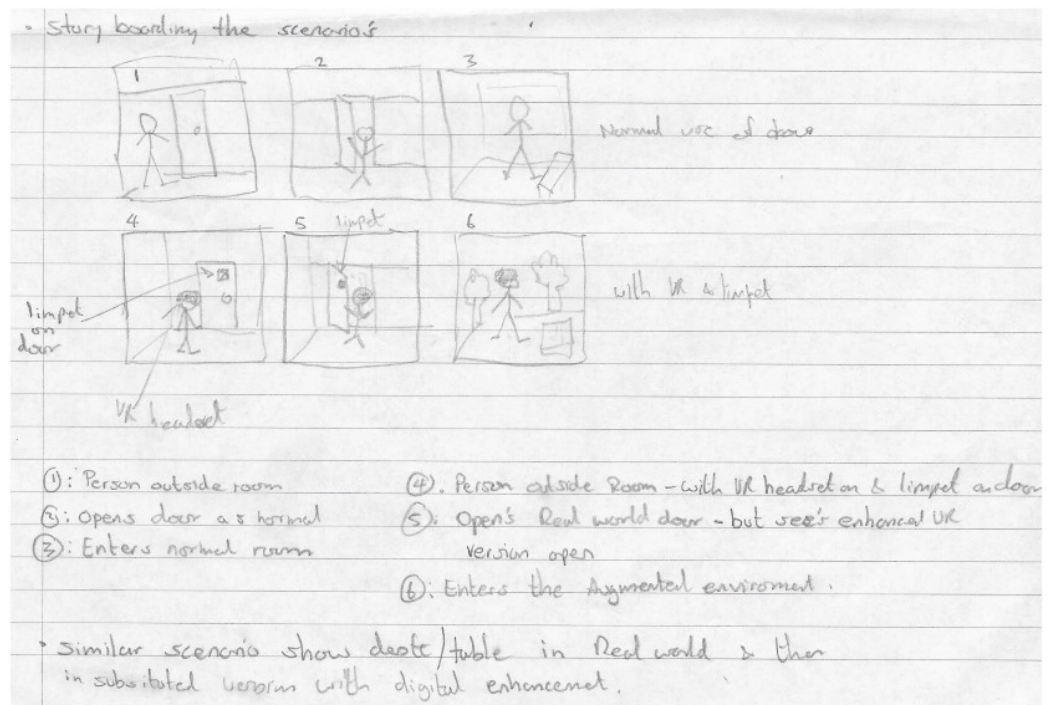 • Story boarding the scenario's
1 2 3
Normal use of door
4 5 limpet 6
with VR & limpet
limpet
on
door
VR headset
①: Person outside room
②: Opens door as normal
③: Enters normal room
④: Person outside Room - with VR headset on & limpet on door
⑤: Open's Real world door - but see's enhanced VR
version open
⑥: Enters the Augmented enviroment.
• similar scenario show desk/table in Real world & then
in subsituted version with digital enhancemet.